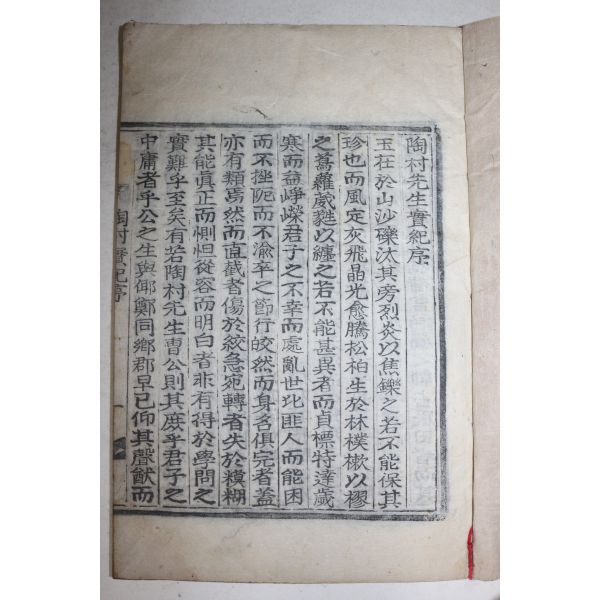 陶村先生實紀序
玉在於山沙礫汰其旁烈炎以焦鑠之若不能保其
珍也而風定灰飛晶光愈騰松柏生於林樸樕以樛
之蔦蘿葳甤以纏之若不能甚異者而貞標特達歲
寒而益崢嶸君子之不幸而處亂世比匪人而能困
而不挫阨而不渝卒之節行皎然而身名俱完者盖
亦有類焉然而直截者傷於絞急宛轉者失於糢糊
其能眞正而惻怛從容而明白者非有得於學問之
實難乎至矣有若陶村先生曺公則其庶乎君子之
中庸者乎公之生與鄭同鄕郡早已仰其聲猷而
陶村實紀序